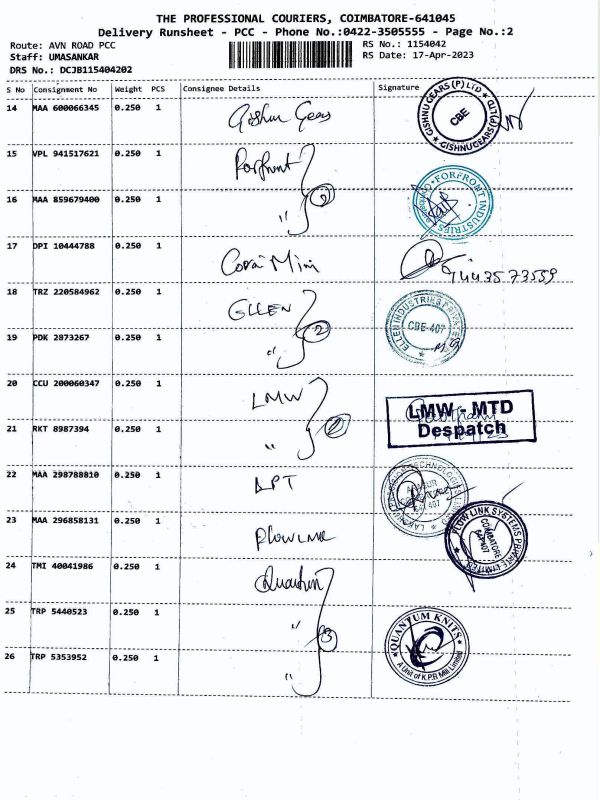 THE PROFESSIONAL COURIERS, COIMBATORE-641045
Delivery Runsheet - PCC - Phone No.:0422-3505555 - Page No.:2
Route: AVN ROAD PCC
RS No.: 1154042
Staff: UMASANKAR
RS Date: 17-Apr-2023
DRS No.: DCJB115404202
S No Consignment No Weight PCS Consignee Details Signature
14 MAA 600066345 0.250 1 Gishnu Gears GISHNU GEARS (P) LTD CBE
15 VPL 941517621 0.250 1 Forfront
16 MAA 859679400 0.250 1 " 2 FORFRONT INDUSTRIES
17 DPI 10444788 0.250 1 Corai Mini 9443573559
18 TRZ 220584962 0.250 1 ELLEN
19 PDK 2873267 0.250 1 " 2 ELLEN INDUSTRIES PRIVATE CBE-407
20 CCU 200060347 0.250 1 LMW LMW - MTD
21 RKT 8987394 0.250 1 " 2 Despatch
22 MAA 298788810 0.250 1 TECHNOLOGIES
23 MAA 296858131 0.250 1 Flowlink FLOW LINK SYSTEMS PRIVATE LIMITED COIMBATORE
24 TMI 40041986 0.250 1 Quantum
25 TRP 5440523 0.250 1 " 3 QUANTUM KNITS
26 TRP 5353952 0.250 1 " A Unit of K.P.R Mill Limited